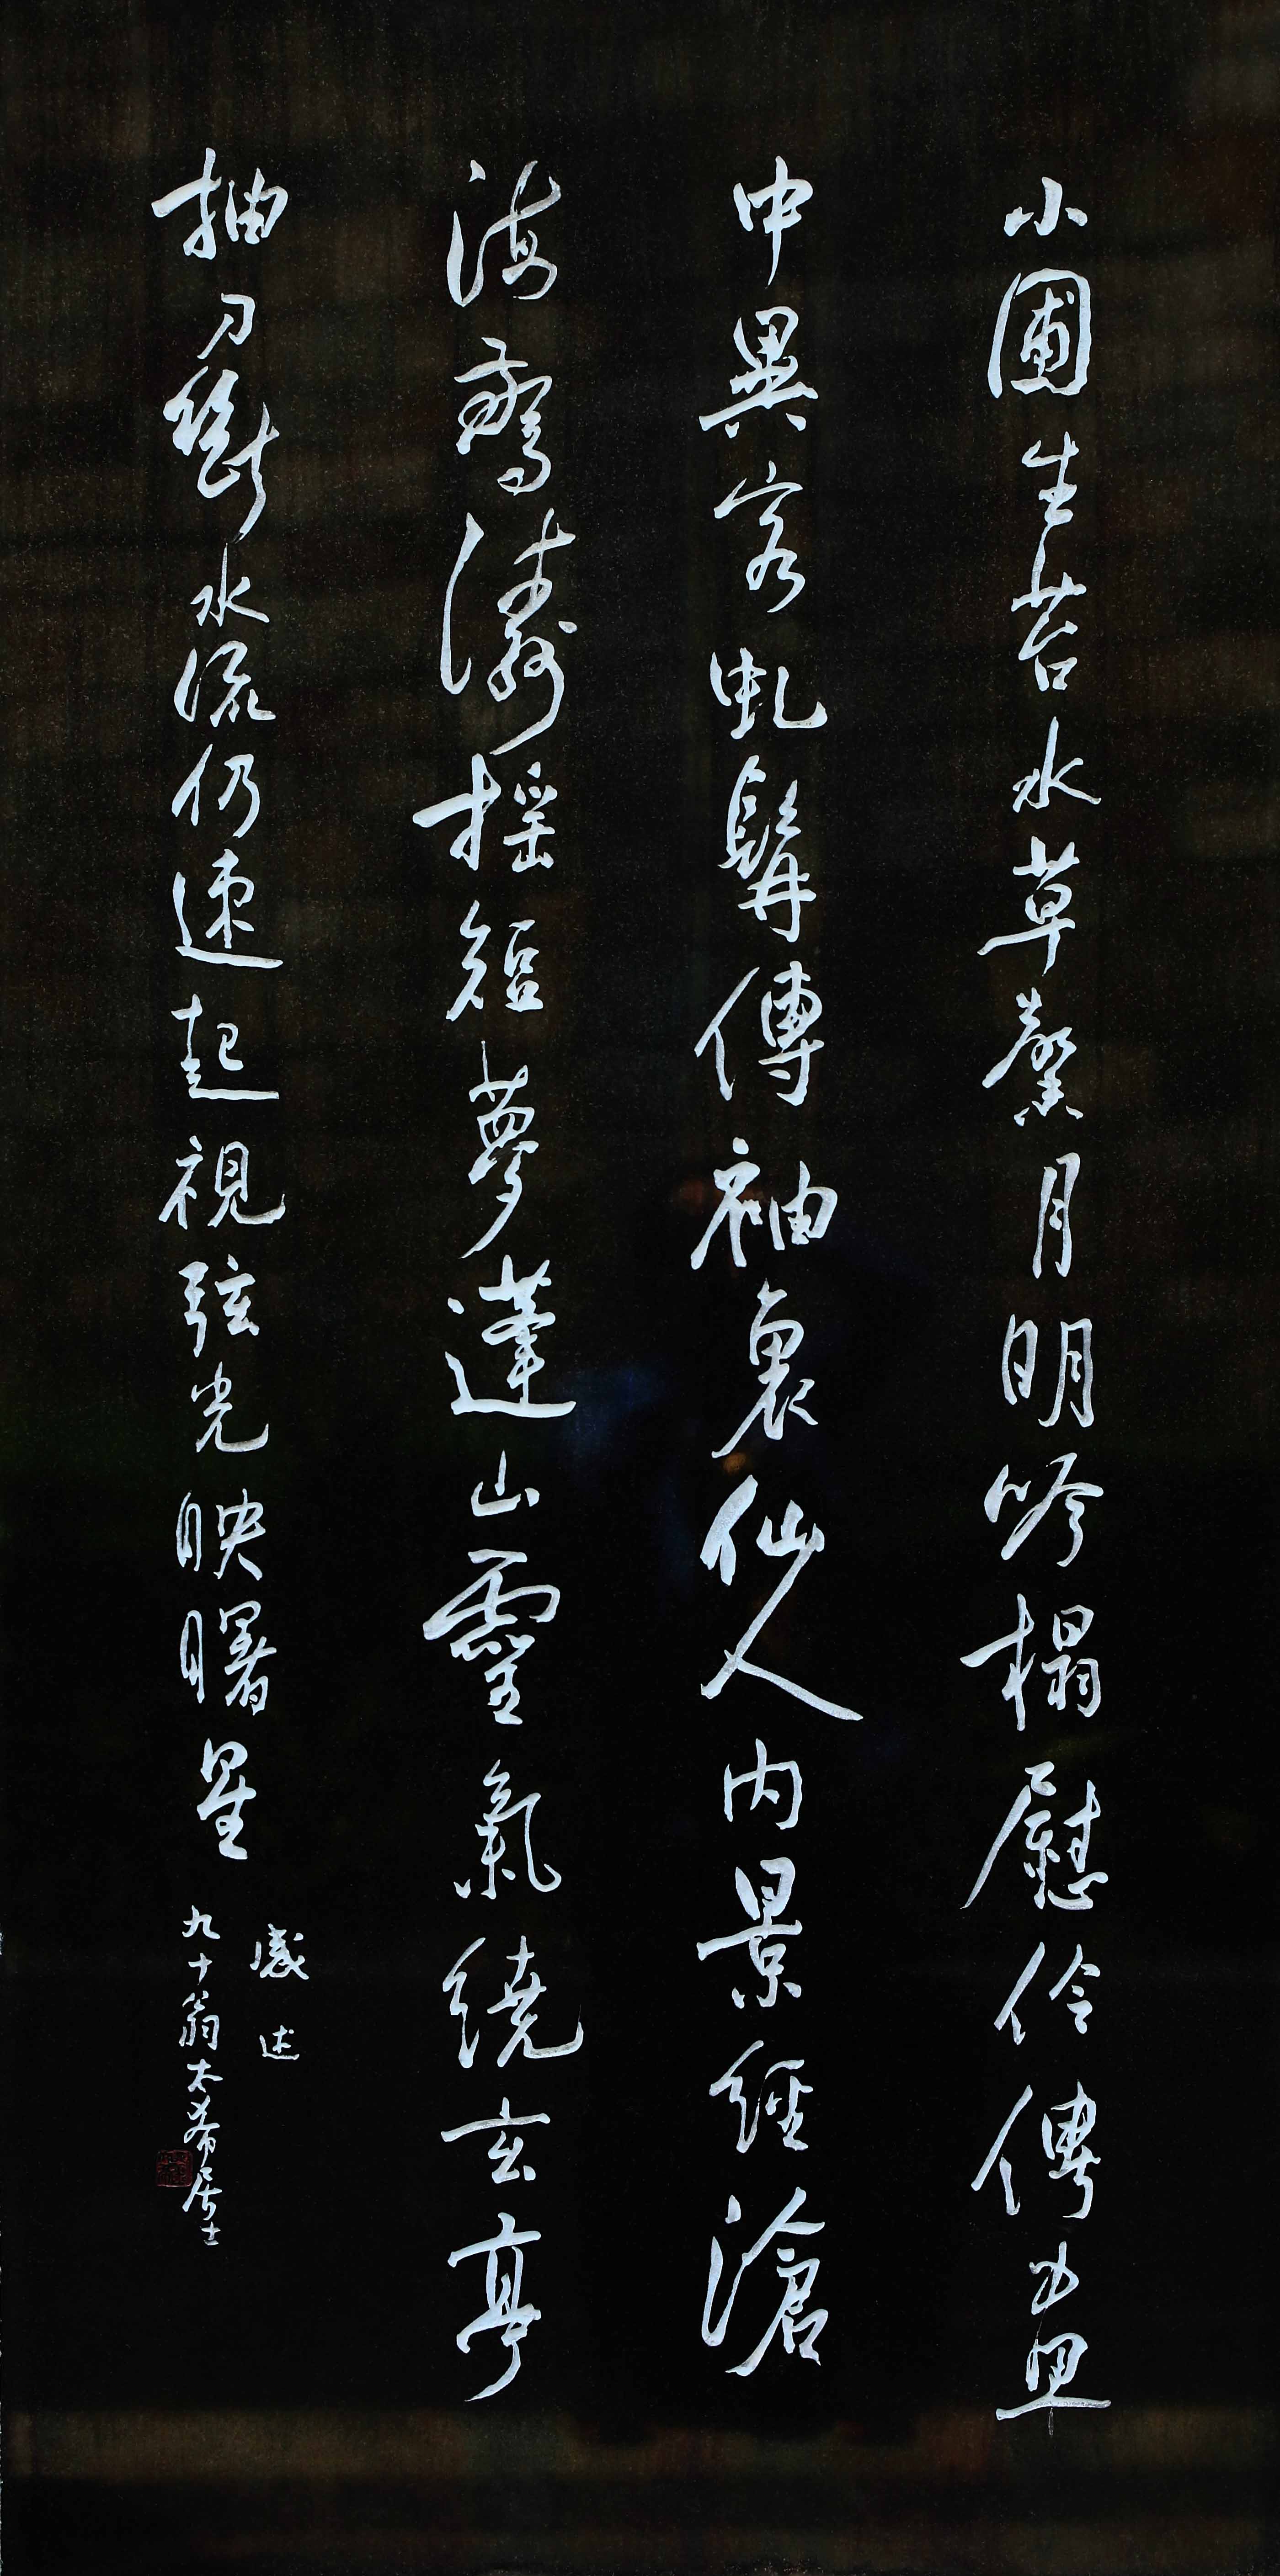 小圃生苔水草馨月明吟榻慰伶俜畫
中異客虬髯傳袖裏仙人內景經滄
海驚濤搖短夢蓬山靈氣繞玄亭
抽刀斷水流仍速起視弦光映曙星
感述
九十翁太希居士